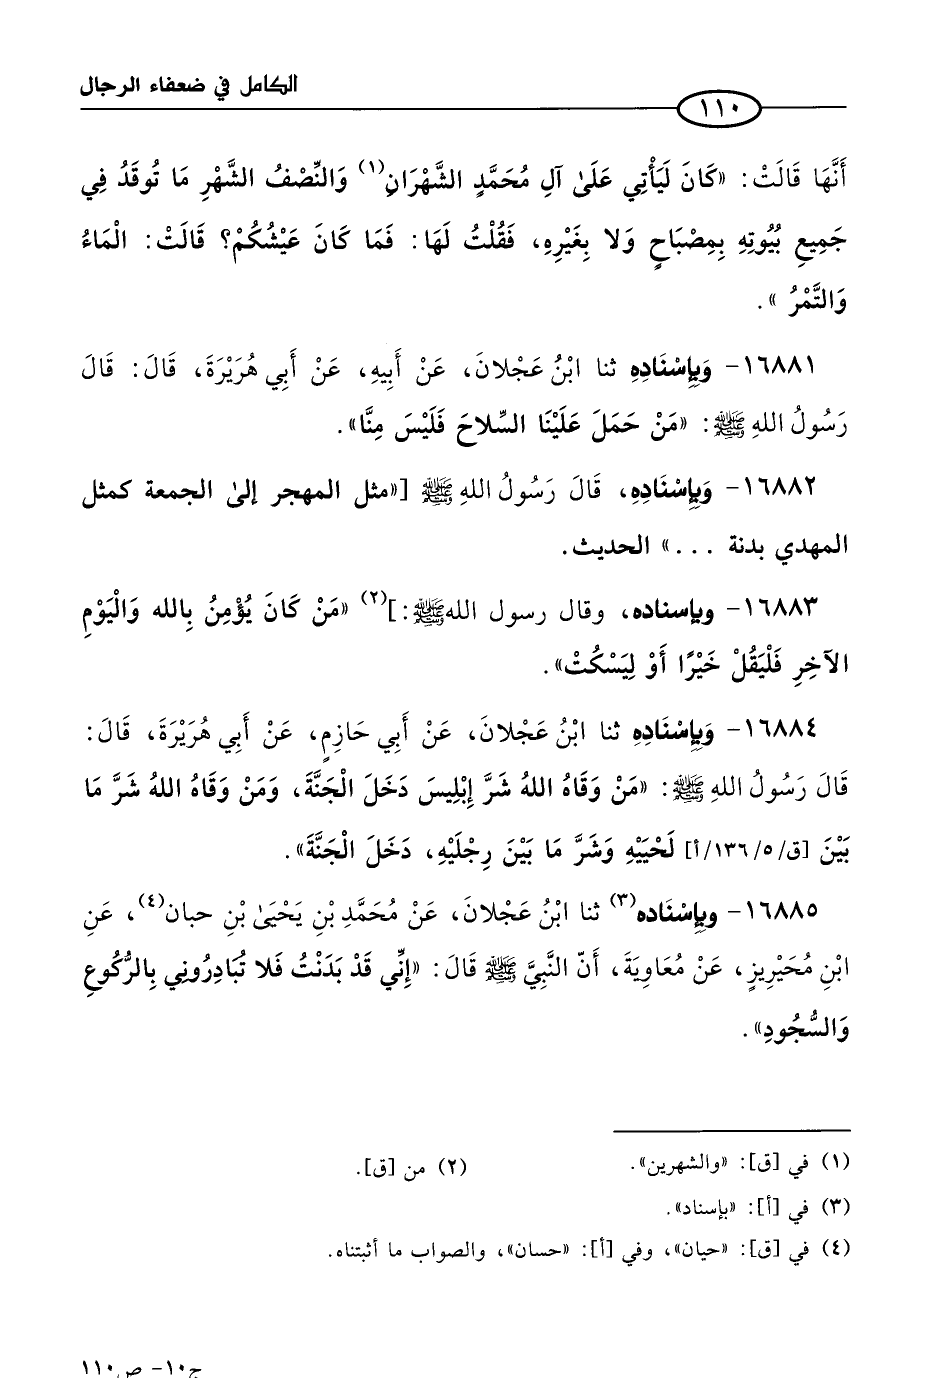 الكامل في ضعفاء الرجال
١١٠
أَنَّهَا قَالَتْ: «كَانَ لَيَأْتِي عَلَىٰ آلِ مُحَمَّدٍ الشَّهْرَانِ(١) وَالنِّصْفُ الشَّهْرِ مَا تُوقَدُ فِي
جَمِيعِ بُيُوتِهِ بِمِصْبَاحٍ وَلا بِغَيْرِهِ، فَقُلْتُ لَهَا: فَمَا كَانَ عَيْشُكُمْ؟ قَالَتْ: الْمَاءُ
وَالتَّمْرُ».
١٦٨٨١- وَبِإِسْنَادِهِ ثنا ابْنُ عَجْلانَ، عَنْ أَبِيهِ، عَنْ أَبِي هُرَيْرَةَ، قَالَ: قَالَ
رَسُولُ اللهِ ﷺ: «مَنْ حَمَلَ عَلَيْنَا السِّلاحَ فَلَيْسَ مِنَّا».
١٦٨٨٢- وَبِإِسْنَادِهِ، قَالَ رَسُولُ اللهِ ﷺ [«مثل المهجر إلىٰ الجمعة كمثل
المهدي بدنة ...» الحديث.
١٦٨٨٣- وبإسناده، وقال رسول الله ﷺ:](٢) «مَنْ كَانَ يُؤْمِنُ بِالله وَالْيَوْمِ
الآخِرِ فَلْيَقُلْ خَيْرًا أَوْ لِيَسْكُتْ».
١٦٨٨٤- وَبِإِسْنَادِهِ ثنا ابْنُ عَجْلانَ، عَنْ أَبِي حَازِمٍ، عَنْ أَبِي هُرَيْرَةَ، قَالَ:
قَالَ رَسُولُ اللهِ ﷺ: «مَنْ وَقَاهُ اللهُ شَرَّ إِبْلِيسَ دَخَلَ الْجَنَّةَ، وَمَنْ وَقَاهُ اللهُ شَرَّ مَا
بَيْنَ [ق/٥/١٣٦/أ] لَحْيَيْهِ وَشَرَّ مَا بَيْنَ رِجْلَيْهِ، دَخَلَ الْجَنَّةَ».
١٦٨٨٥- وبِإِسْنَاده(٣) ثنا ابْنُ عَجْلانَ، عَنْ مُحَمَّدِ بْنِ يَحْيَىٰ بْنِ حبان(٤)، عَنِ
ابْنِ مُحَيْرِيزٍ، عَنْ مُعَاوِيَةَ، أَنّ النَّبِيَّ ﷺ قَالَ: «إِنِّي قَدْ بَدَنْتُ فَلا تُبَادِرُونِي بِالرُّكُوعِ
وَالسُّجُودِ».
(١) في [ق]: «والشهرين». (٢) من [ق].
(٣) في [أ]: «بإسناد».
(٤) في [ق]: «حيان»، وفي [أ]: «حسان»، والصواب ما أثبتناه.
ج١٠- ص١١٠